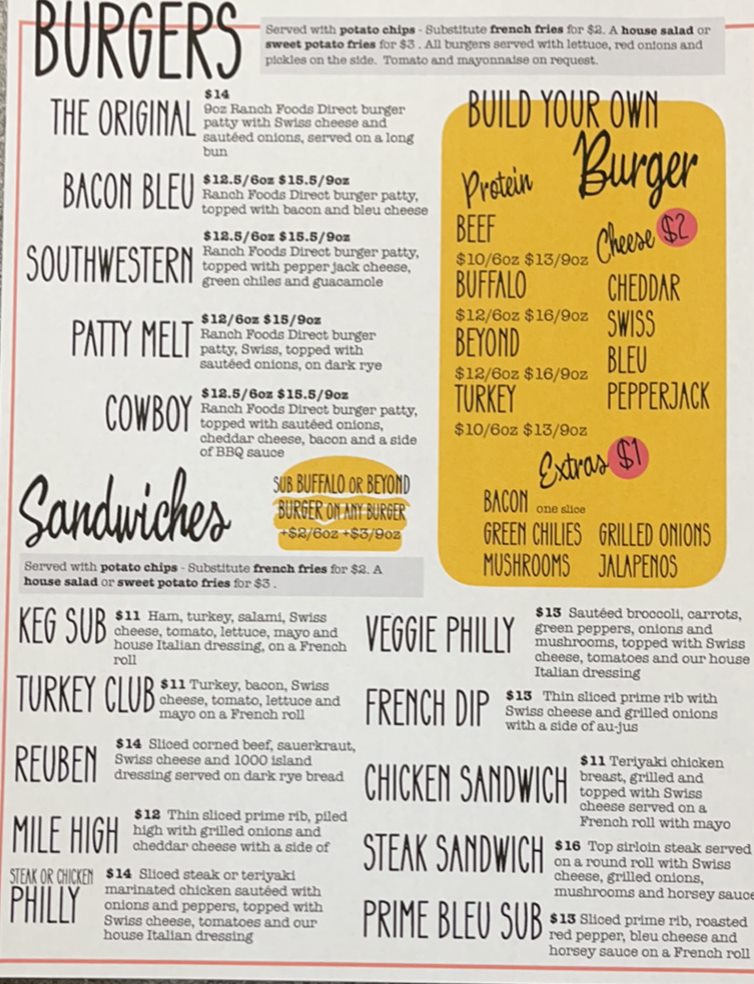 BURGERS
Served with potato chips - Substitute french fries for $2. A house salad or
sweet potato fries for $3 . All burgers served with lettuce, red onions and
pickles on the side. Tomato and mayonnaise on request.
THE ORIGINAL
$14
9oz Ranch Foods Direct burger
patty with Swiss cheese and
sautéed onions, served on a long
bun
BACON BLEU
$12.5/6oz $15.5/9oz
Ranch Foods Direct burger patty,
topped with bacon and bleu cheese
SOUTHWESTERN
$12.5/6oz $15.5/9oz
Ranch Foods Direct burger patty,
topped with pepper jack cheese,
green chiles and guacamole
PATTY MELT
$12/6oz $15/9oz
Ranch Foods Direct burger
patty, Swiss, topped with
sautéed onions, on dark rye
COWBOY
$12.5/6oz $15.5/9oz
Ranch Foods Direct burger patty,
topped with sautéed onions,
cheddar cheese, bacon and a side
of BBQ sauce
BUILD YOUR OWN
Burger
Protein
BEEF
$10/6oz $13/9oz
BUFFALO
$12/6oz $16/9oz
BEYOND
$12/6oz $16/9oz
TURKEY
$10/6oz $13/9oz
Cheese $2
CHEDDAR
SWISS
BLEU
PEPPERJACK
Extras $1
BACON one slice
GREEN CHILIES GRILLED ONIONS
MUSHROOMS JALAPENOS
SUB BUFFALO OR BEYOND
BURGER ON ANY BURGER
+$2/6oz +$3/9oz
Sandwiches
Served with potato chips - Substitute french fries for $2. A
house salad or sweet potato fries for $3 .
KEG SUB
$11 Ham, turkey, salami, Swiss
cheese, tomato, lettuce, mayo and
house Italian dressing, on a French
roll
TURKEY CLUB
$11 Turkey, bacon, Swiss
cheese, tomato, lettuce and
mayo on a French roll
REUBEN
$14 Sliced corned beef, sauerkraut,
Swiss cheese and 1000 island
dressing served on dark rye bread
MILE HIGH
$12 Thin sliced prime rib, piled
high with grilled onions and
cheddar cheese with a side of
STEAK OR CHICKEN
PHILLY
$14 Sliced steak or teriyaki
marinated chicken sautéed with
onions and peppers, topped with
Swiss cheese, tomatoes and our
house Italian dressing
VEGGIE PHILLY
$13 Sautéed broccoli, carrots,
green peppers, onions and
mushrooms, topped with Swiss
cheese, tomatoes and our house
Italian dressing
FRENCH DIP
$13 Thin sliced prime rib with
Swiss cheese and grilled onions
with a side of au-jus
CHICKEN SANDWICH
$11 Teriyaki chicken
breast, grilled and
topped with Swiss
cheese served on a
French roll with mayo
STEAK SANDWICH
$16 Top sirloin steak served
on a round roll with Swiss
cheese, grilled onions,
mushrooms and horsey sauce
PRIME BLEU SUB
$13 Sliced prime rib, roasted
red pepper, bleu cheese and
horsey sauce on a French roll